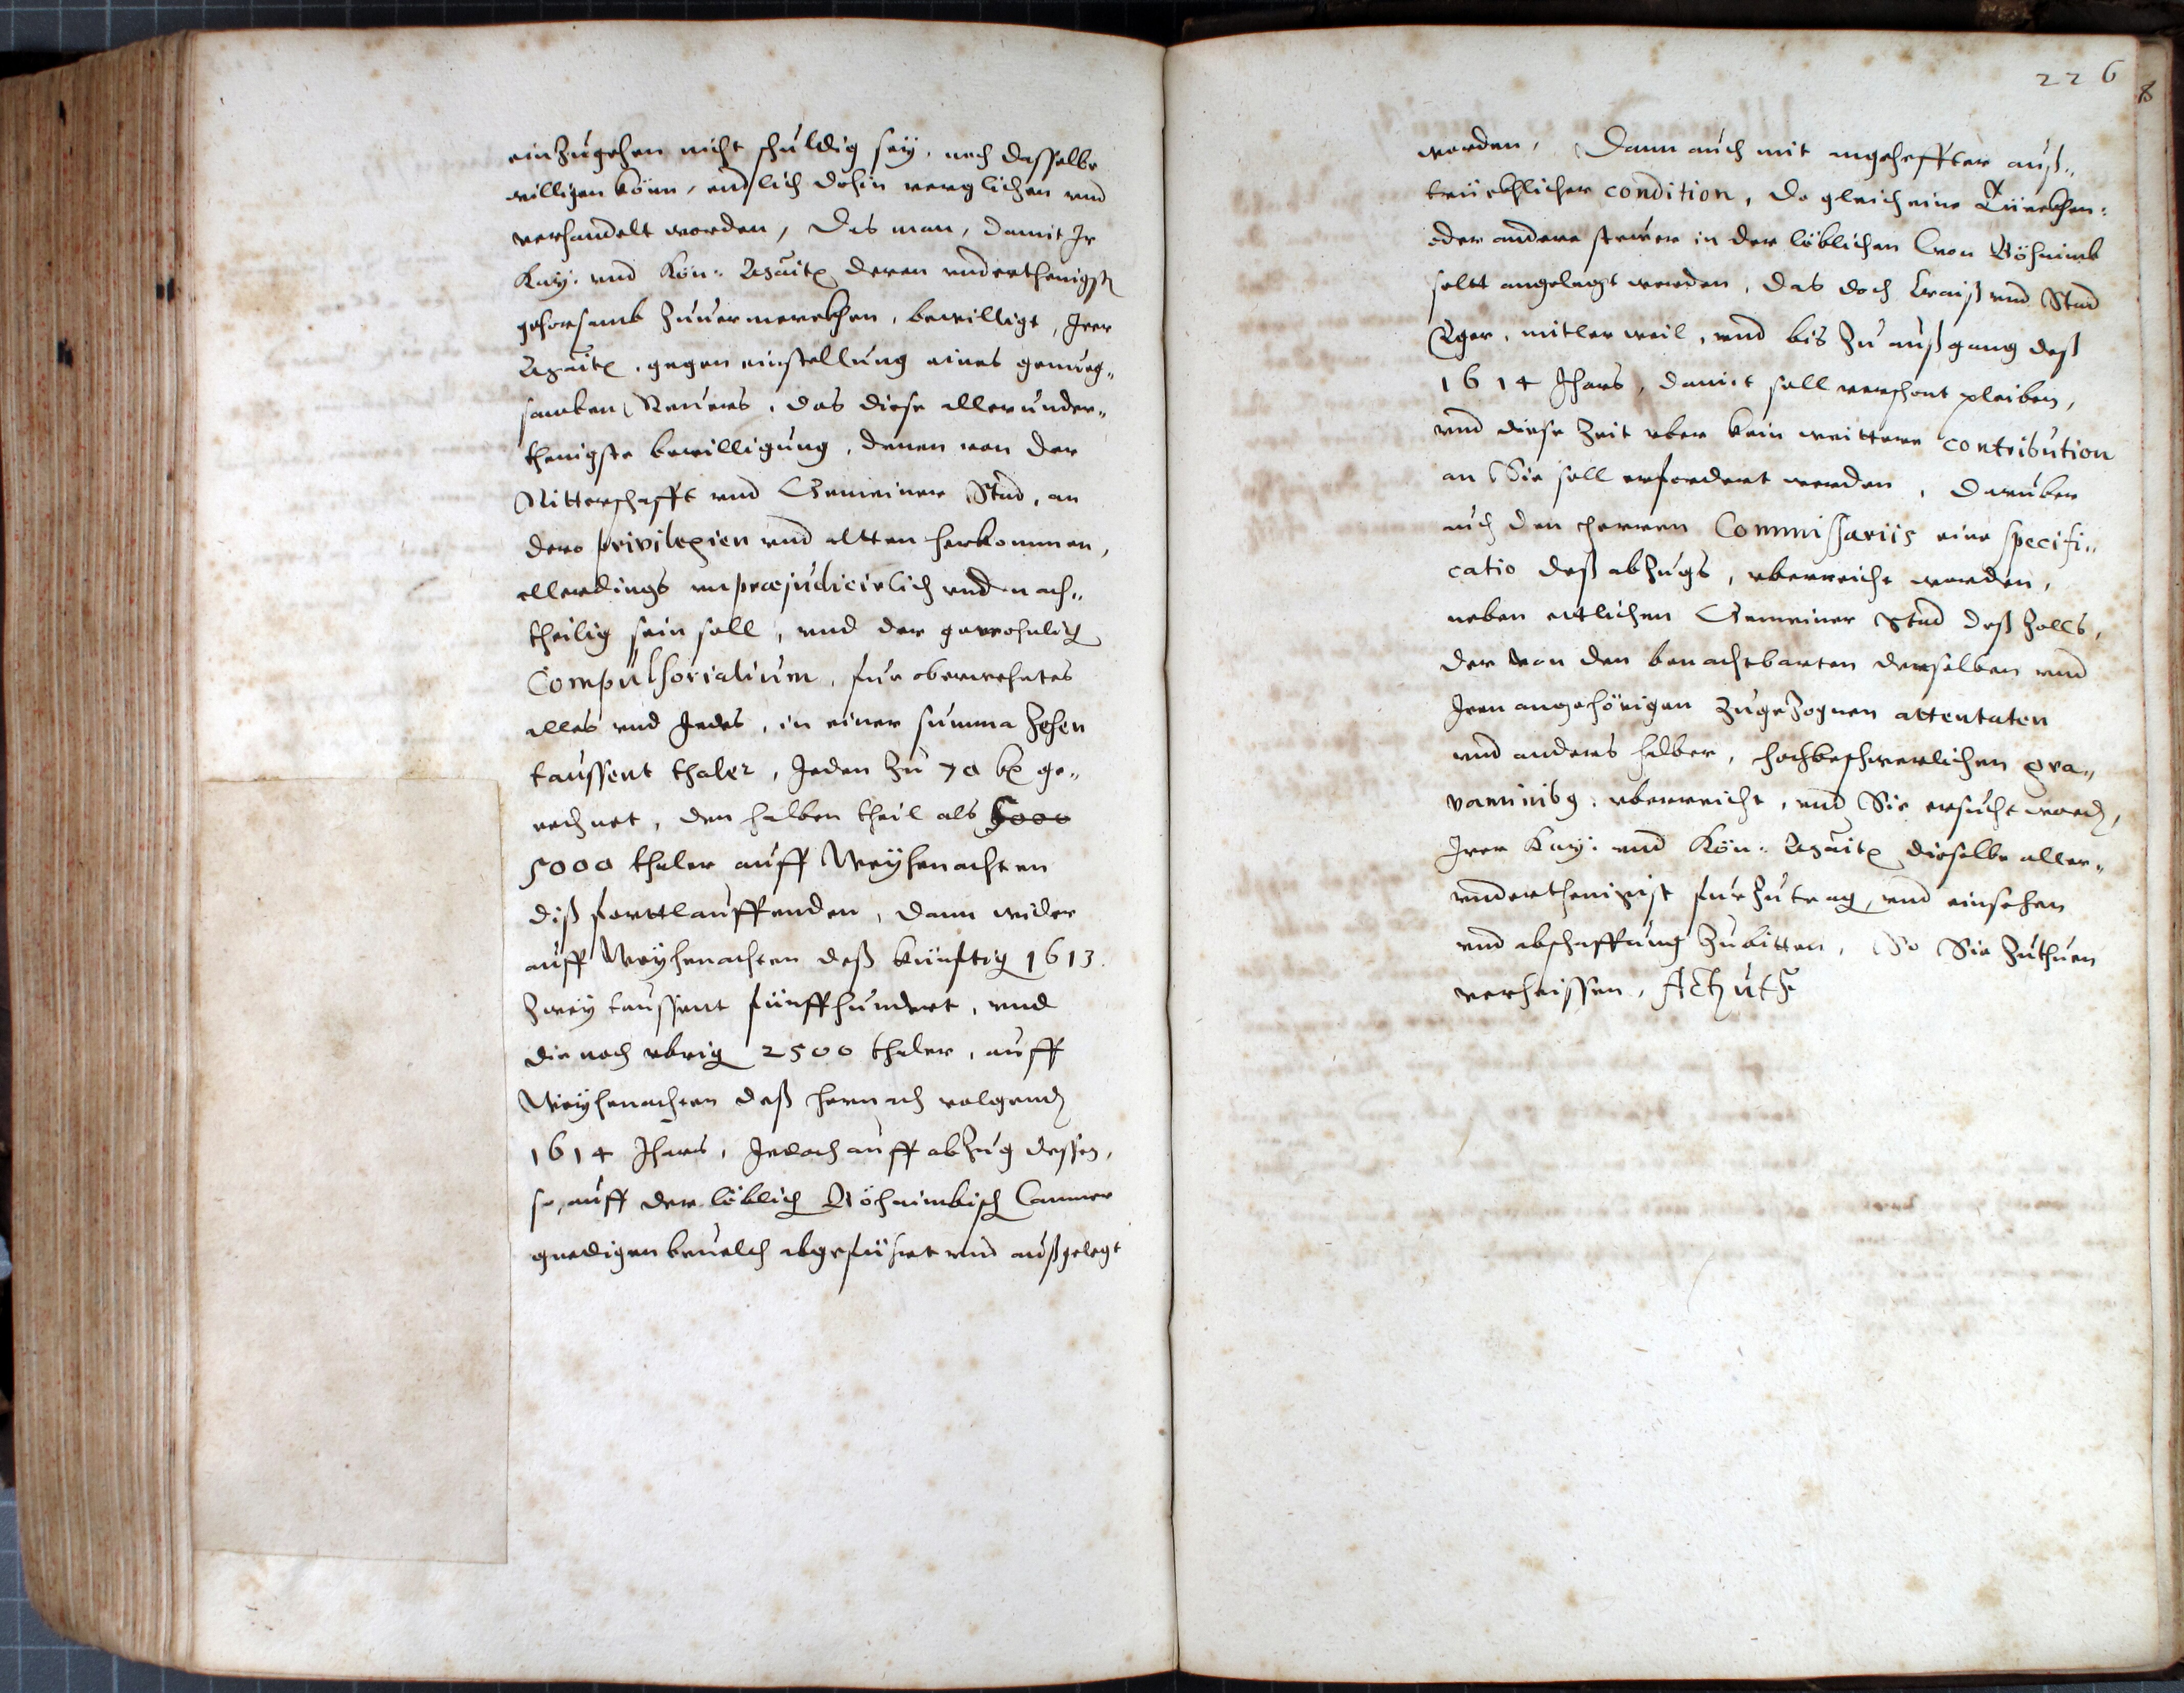 einzugehen nicht schuldig seÿ, noch dasselbe
willigen könn, endlich dohin verglichen vnd
verhandelt worden, Das man, damit Jr
Kaÿ: vnd Kön: Maÿtt deren vnderthenigst
gehorsamb zuuermerckhen, bewilligt, Jrer
Maÿtt, gegen einstellung eines genueg„
samben Reuers, das diese allerunder„
thenigste bewilligung, denen von der
Ritterschafft vnd Gemeiner Stad, an
dero privilegien vnd altten herkommen,
allerdings vnpræjudicirlich vnd nach„
theilig sein soll, vnd der gewohnlich
Compulsorialium, fur oberwehntes
alles vnd Jedes, in einer summa Zehen
taussent thaler, Jeden zu 70 kr ge„
rechnet, den halben theil als 5000
5000 thaler auff Weÿhenachten
diß forttlauffenden, dann wider
auff Weÿhenachten deß künfftig 1613.
Zweÿ taussent fünffhundert, vnd
die noch vbrig 2500 thaler, auff
Weÿhenachten deß hernach volgend
1614 Jhars, Jedoch auff abzug dessen,
so, auff der löblich Böhaimbisch Cammer
gnedigen beuelch abgeführt vnd außgelegt
226
8
worden, Dann auch mit angeheffter auß„
trückhlicher condition, do gleich eine Türckhen:
oder andere steuer in der löblichen Cron Böhaimb
soltt angelegt werden, das doch Craiß vnd Stad
Eger, mitler weil, vnd bis zu außgang deß
1614 Jhars, damit soll verschont pleiben,
vnd diese Zeit vber kein weittere contribution
an Sie soll erfordert werden, Darüber
auch den Herren Commissariis eine specifi„
catio deß abzugs, vberreicht worden,
neben ettlichen Gemeiner Stad deß Zolls,
der von den benachtbarten derselben vnd
Jren angehörigen zugezognen attentaten
vnd anders halber, hochbeschwerlichen gra„
vaminibus, vberreicht, vnd Sie ersucht word,
Jrer Kaÿ: vnd Kön: Maÿtt dieselbe aller„
vnderthenigist fürzutrag, vnd einsehen
vnd abschaffung zubitten, So Sie zuthuen
verheissen, Act ut